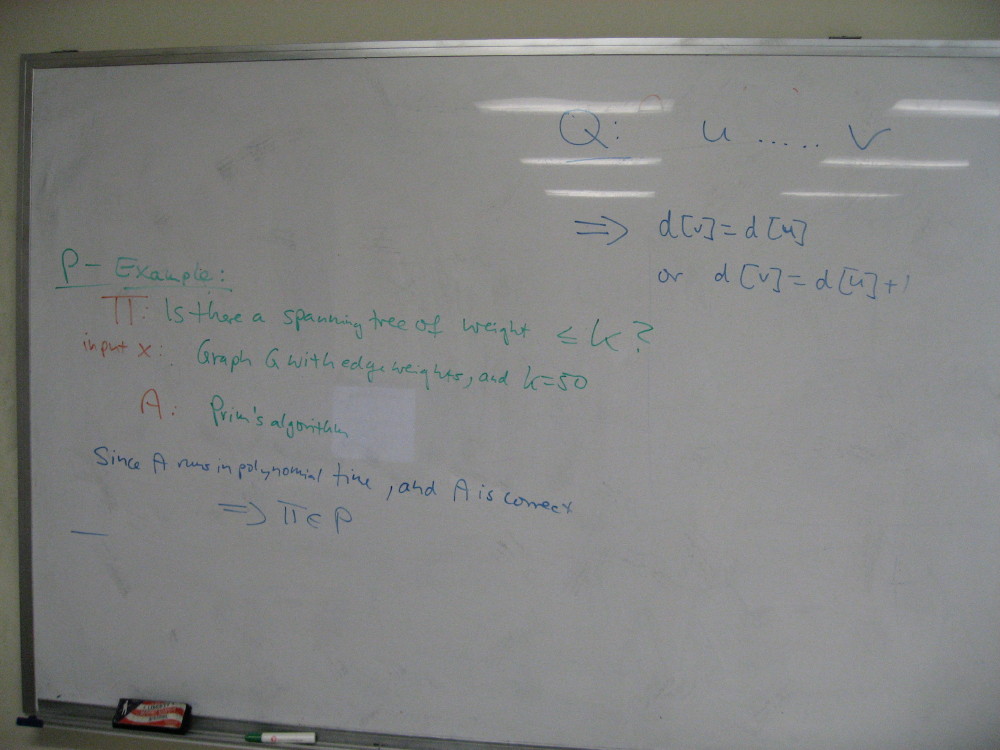 Q: u ..... v
⇒ d[v] = d[u]
or d[v] = d[u]+1
P - Example:
Π: Is there a spanning tree of weight ≤ k?
input x: Graph G with edge weights, and k=50
A: Prim's algorithm
Since A runs in polynomial time, and A is correct
⇒ Π ∈ P